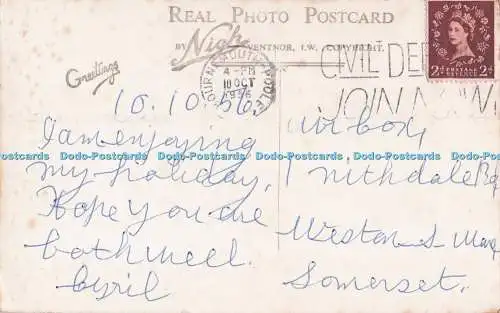 REAL PHOTO POSTCARD
BY Nigh VENTNOR, I.W. COPYRIGHT.
Greetings
BOURNEMOUTH-POOLE
4-PM
10 OCT
1956
CIVIL DEF
JOIN NOW
2d POSTAGE REVENUE 2d
10.10.56
I am enjoying
my holiday,
Hope you are
both well.
Cyril
1 nithdale Rd
Weston S Mare
Somerset.
Dodo-Postcards Dodo-Postcards Dodo-Postcards Dodo-Postcards Dodo-Postcards